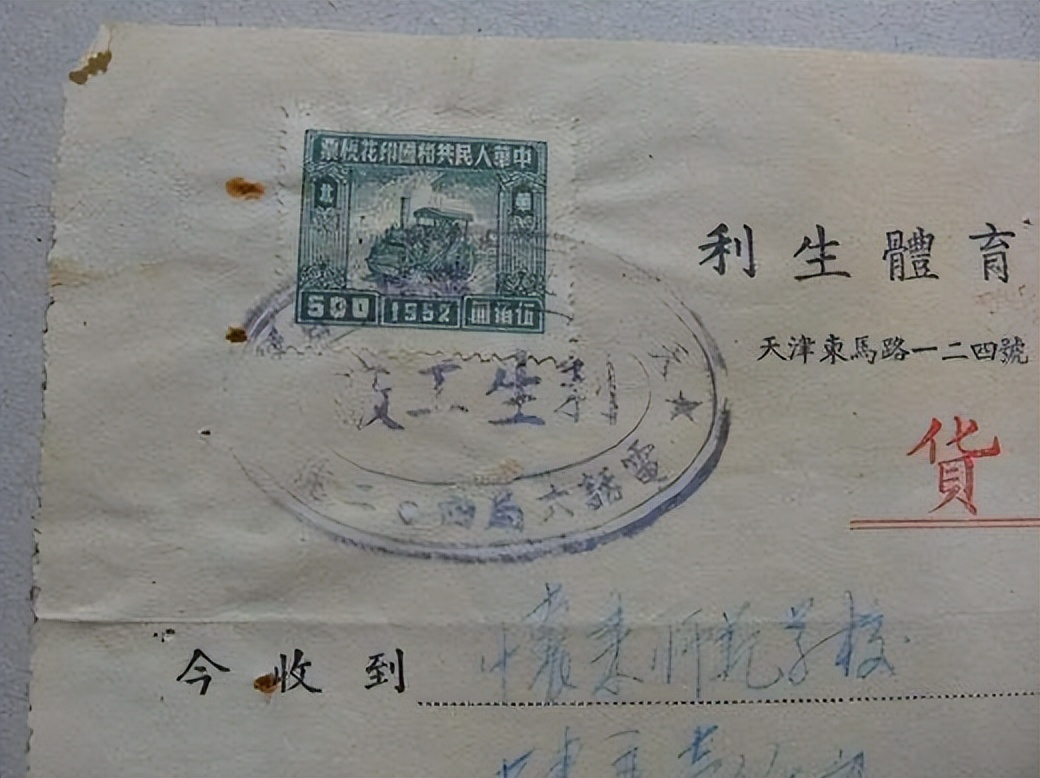 中華人民共和國印花稅票
華北
500 1952 伍佰圓
利生體育
天津東馬路一二四號
利生工
電話六局四〇二
貨
今收到
師範學校